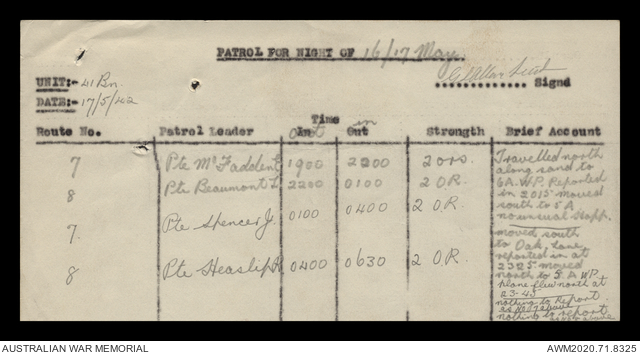 PATROL FOR NIGHT OF 16/17 May
UNIT:- 41 Bn.
Signd
DATE:- 17/5/42
Time
Route No. Patrol Leader Out In in Out Strength Brief Account
7 Pte McFadden 1900 2200 2 O.R.
8 Pte Beaumont L 2200 0100 2 O.R.
7. Pte Spencer J. 0100 0400 2 O.R.
8 Pte Heaslip 0400 0630 2 O.R.
Travelled north
along sand to
6A. W.P. Reported
in 2015 moved
south to 5 A
no unusual Happ.
moved south
to Oak Lane
reported in at
2325 moved
north to 5. A W.P.
plane flew north at
23-45
nothing to Report
as No 7 above
nothing to report
as No 8 above
AUSTRALIAN WAR MEMORIAL
AWM2020.71.8325